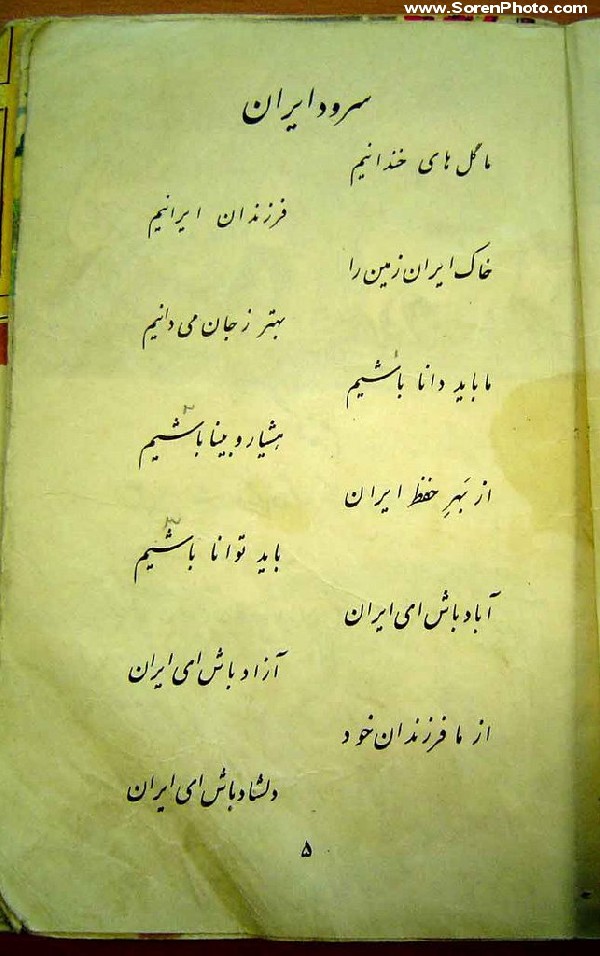 www.SorenPhoto.com
سرود ایران
ما گل های خندانیم
فرزندان ایرانیم
خاک ایران زمین را
بهتر ز جان می دانیم
ما باید دانا باشیم
هشیار و بینا باشیم
از بَهرِ حفظ ایران
باید توانا باشیم
آباد باش ای ایران
آزاد باش ای ایران
از ما فرزندان خود
دلشاد باش ای ایران
۵